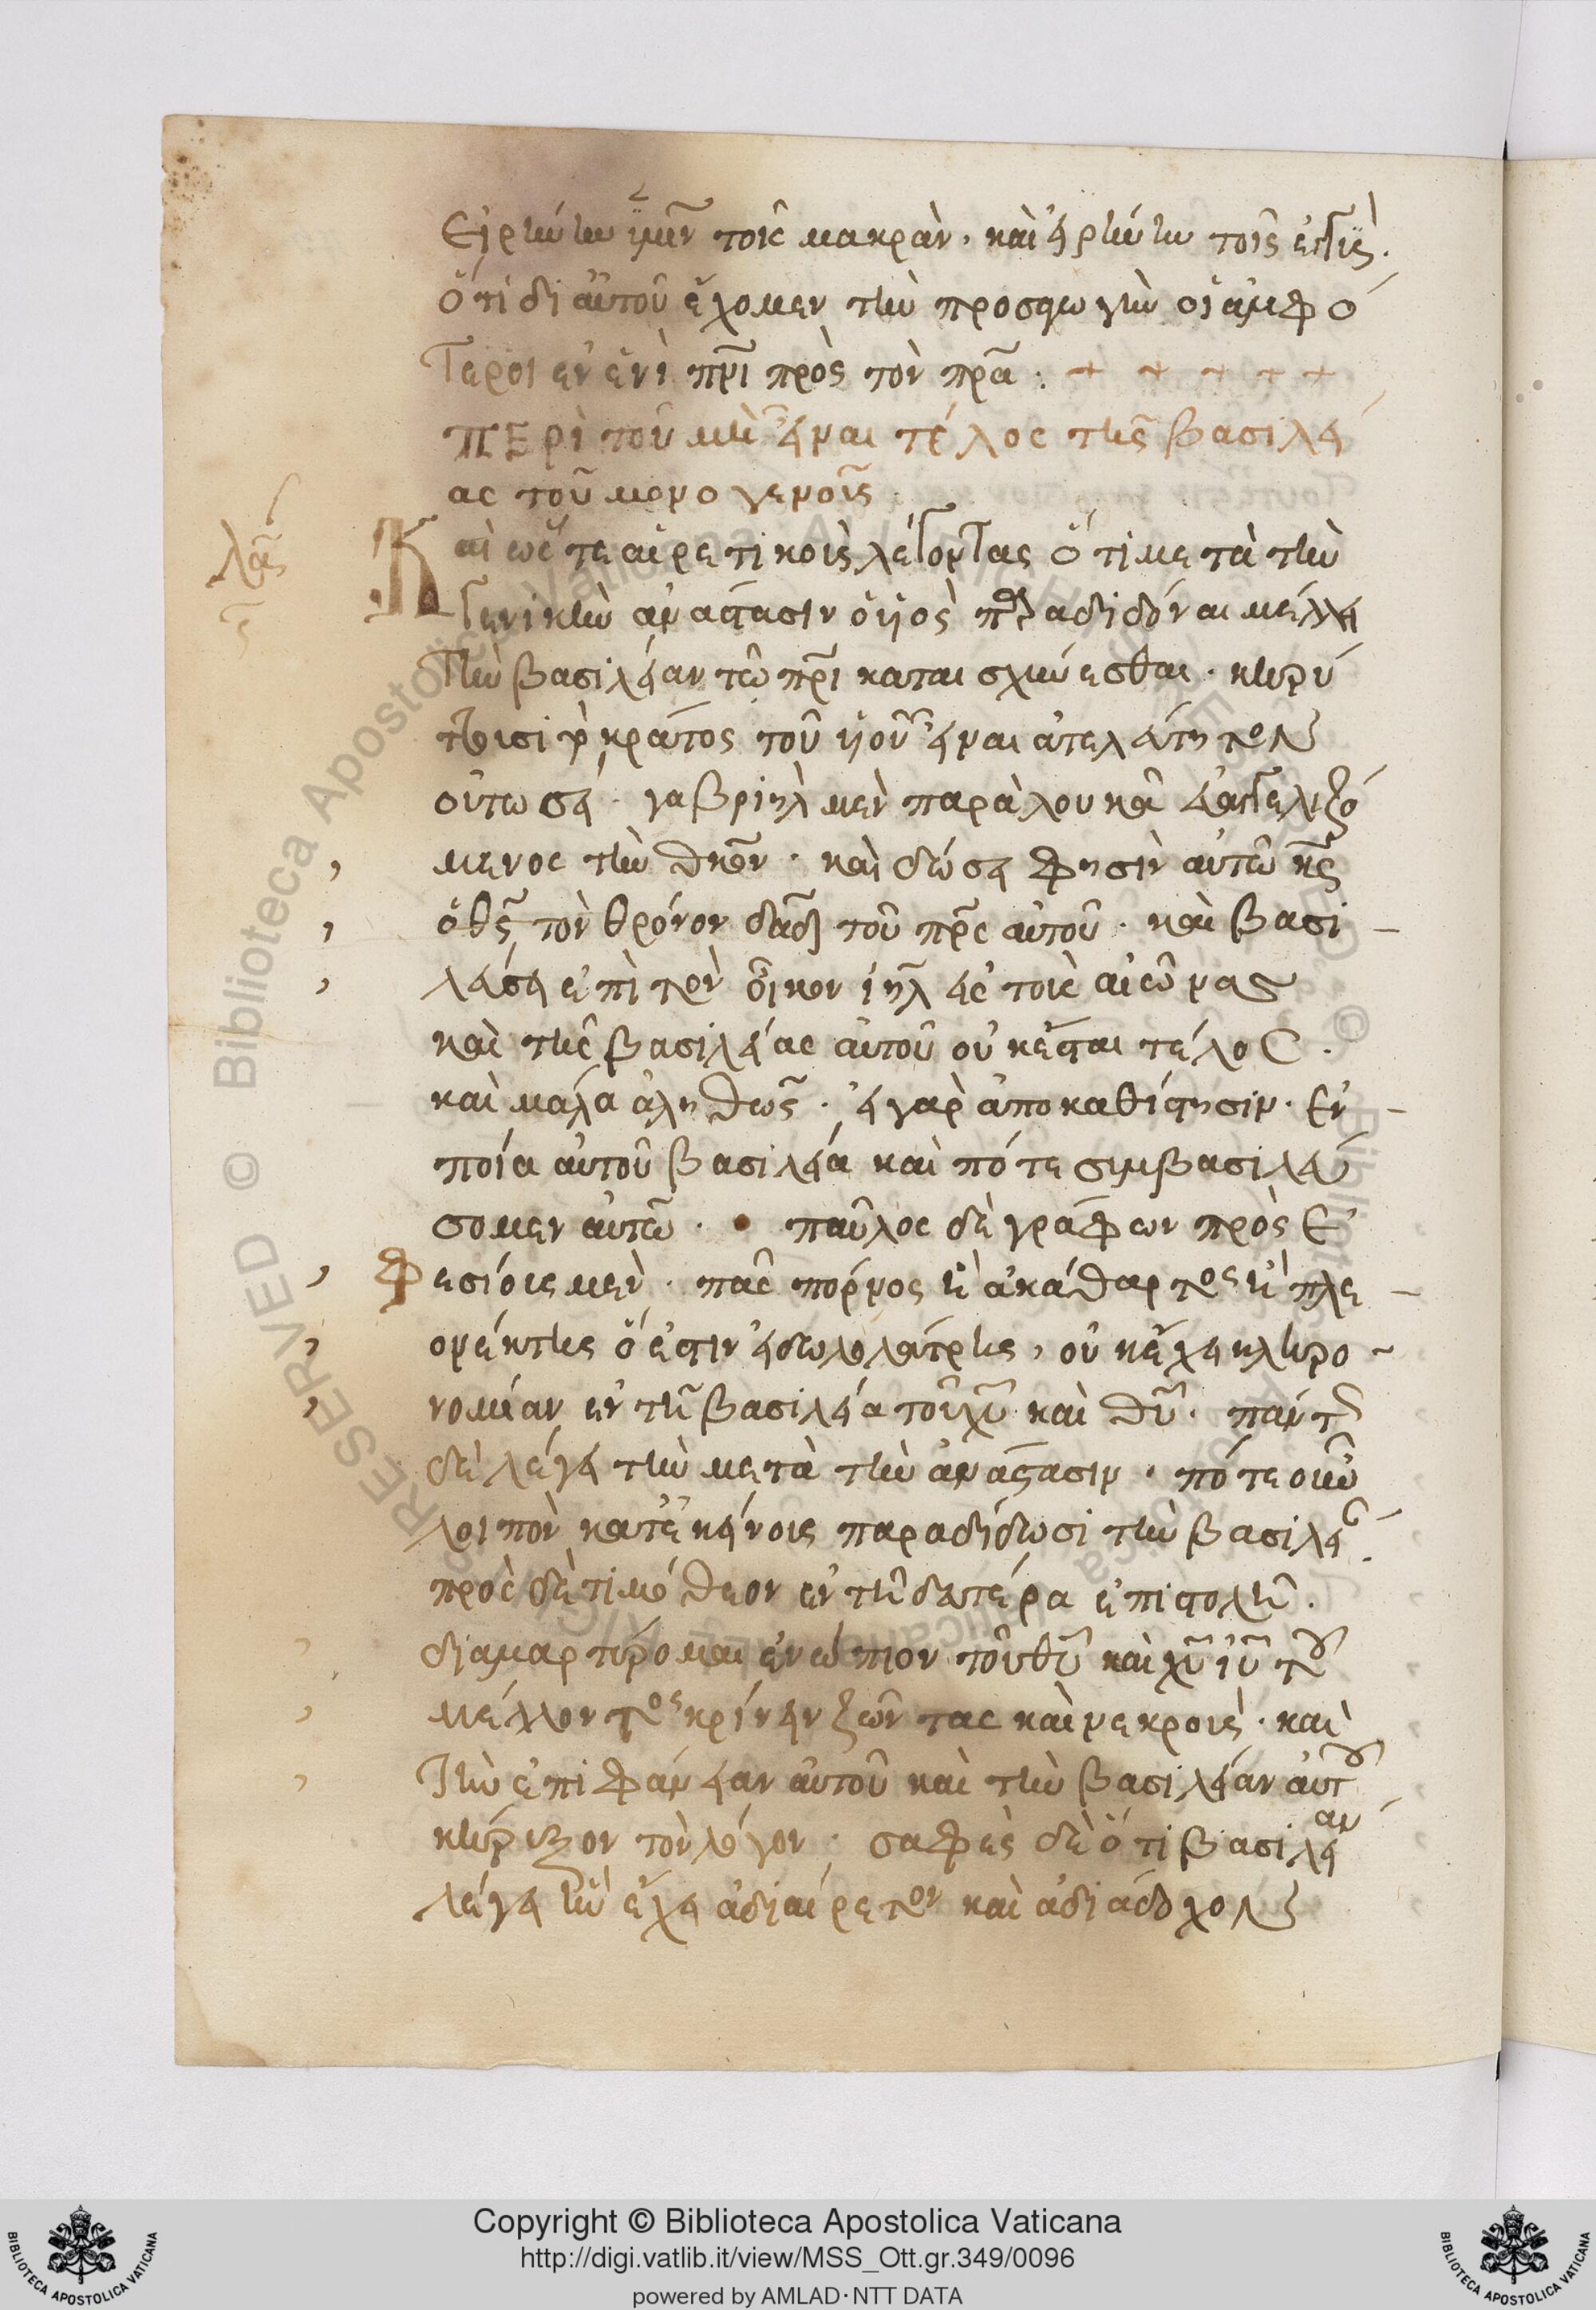 εἰρήνην ὑμῖν τοῖς μακρὰν· καὶ εἰρήνην τοῖς ἐγγύς.
ὅτι δι αὐτοῦ ἔχομεν τὴν προσαγωγὴν οἱ ἀμφό
τεροι ἐν ἑνὶ πνι πρὸς τὸν πρα : + + + + +
περὶ τοῦ μὴ εἶναι τέλος τῆς βασιλεί
ας τοῦ μονογενοῦς
Καὶ ὥστε αἱρετικοὺς λέγοντας ὅτι μετὰ τὴν
γενικὴν ἀνάστασιν ὁ υἱὸς παραδιδόναι μέλλει
τὴν βασιλείαν τῶ πρι καταισχύνεσθαι· κηρύ
τουσι τὸ κράτος τοῦ υἱοῦ εἶναι ἀτελεύτητον
οὑτωσεί· γαβριὴλ μὲν παρὰ λουκᾶ εὐαγγελιζό
μενος τὴν θκον· καὶ δώσει φησὶν αὐτῶ κς
ὁ θς τὸν θρόνον δαδ τοῦ πρς αὐτοῦ· καὶ βασι
λεύσει ἐπὶ τὸν οἶκον ιηλ εἰς τοὺς αἰῶνας
καὶ τῆς βασιλείας αὐτοῦ οὐκ ἔσται τέλος.
καὶ μάλα ἀληθῶς· εἰ γὰρ ἀποκαθίστησιν· ἐν
ποία αὐτοῦ βασιλεία καὶ πότε συμβασιλεύ
σομεν αὐτῶ· παῦλος δὲ γράφων πρὸς ἐ
φεσίους μὲν· πᾶς πόρνος ἢ ἀκάθαρτος ἢ πλε
ονέκτης ὅ ἐστιν εἰδωλολάτρης, οὐκ ἔχει κληρο
νομίαν ἐν τῆ βασιλεία τοῦ χυ καὶ θυ· πάντως
δὲ λέγει τὴν μετὰ τὴν ἀνάστασιν· πότε οὖν
λοιπὸν κατ ἐκείνοις παραδίδωσι τὴν βασιλεί
πρὸς δὲ τιμόθεον ἐν τῆ δευτέρα ἐπιστολῆ.
διαμαρτύρομαι ἐνώπιον τοῦ θυ καὶ χυ ιυ τοῦ
μέλλοντος κρίνειν ζῶντας καὶ νεκρούς· καὶ
τὴν ἐπιφάνειαν αὐτοῦ καὶ τὴν βασιλείαν αὐτοῦ
κήρυξον τὸν λόγον· σαφὲς δὲ ὅτι βασιλείαν
λέγει ἣν ἔχει ἀδιαίρετον καὶ ἀδιάδοχον
Copyright © Biblioteca Apostolica Vaticana
http://digi.vatlib.it/view/MSS_Ott.gr.349/0096
powered by AMLAD·NTT DATA
BIBLIOTECA APOSTOLICA VATICANA
BIBLIOTECA APOSTOLICA VATICANA